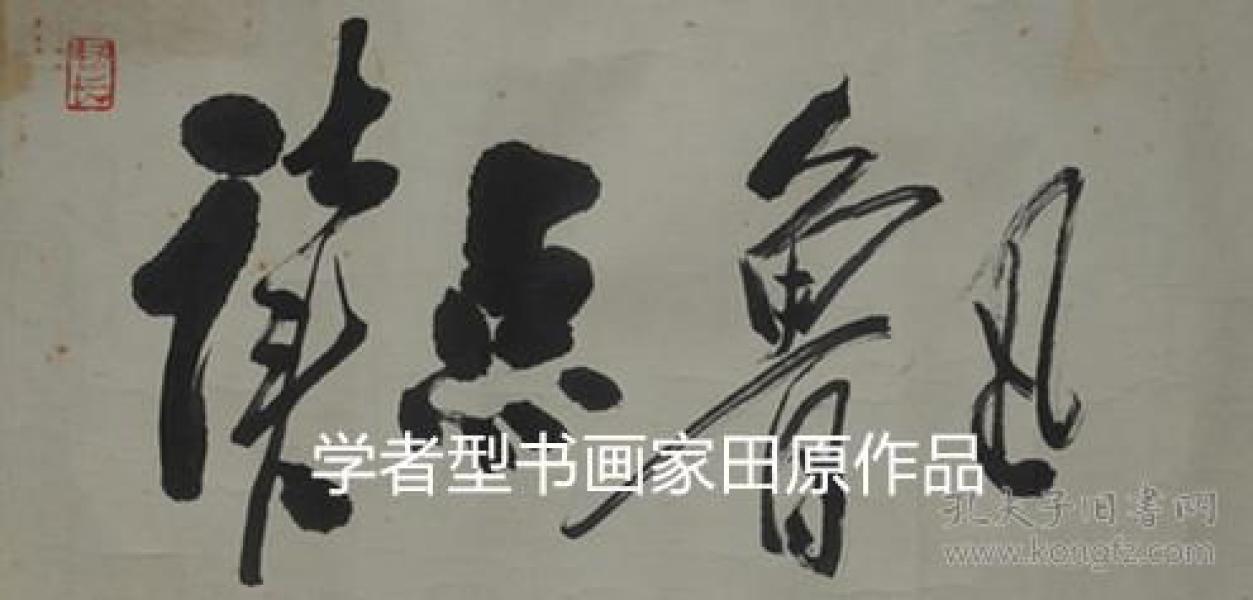 读点鲁迅
学者型书画家田原作品
孔夫子旧书网
www.kongfz.com